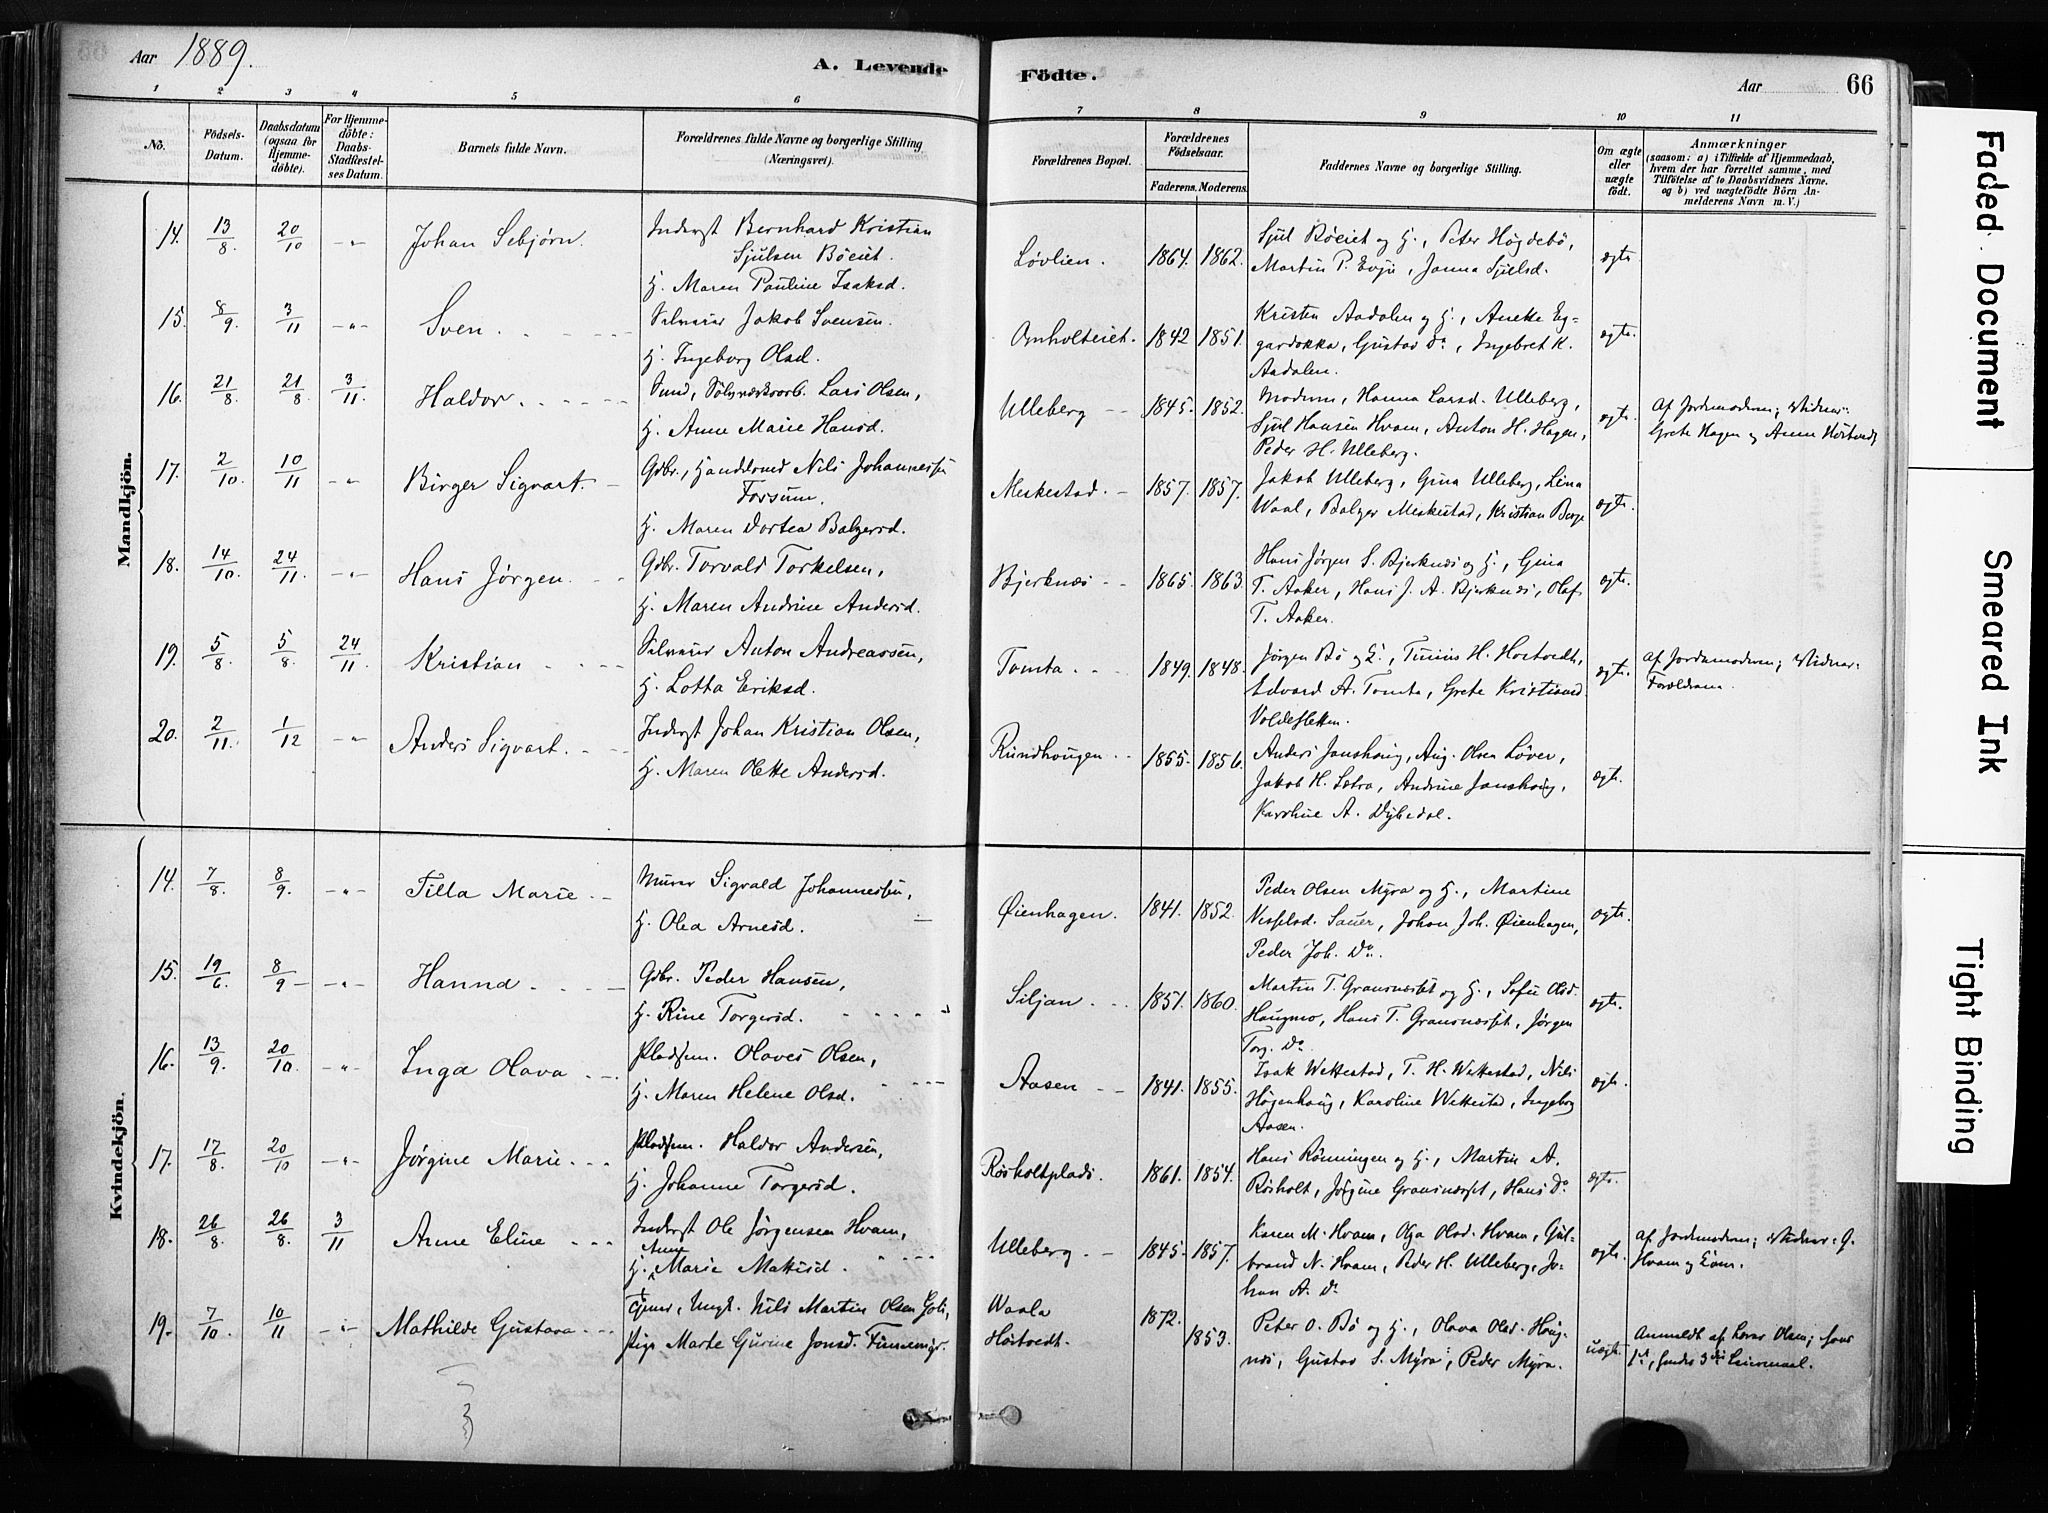 Aar 1889.
A. Levende Födte.
Aar 66
1 2 3 4 5 6 7 8 9 10 11
No.
Födsels-Datum.
Daabsdatum (ogsaa for Hjemme-döbte).
For Hjemme-döbte: Daabs-Stadfæstel-ses Datum.
Barnets fulde Navn.
Forældrenes fulde Navne og borgerlige Stilling (Næringsvei).
Forældrenes Bopæl.
Forældrenes Födselsaar.
Faderens. Moderens.
Faddernes Navne og borgerlige Stilling.
Om ægte eller uægte födt.
Anmærkninger
(saasom: a) i Tilfælde af Hjemmedaab,
hvem der har forrettet samme, med
Tilföielse af to Daabsvidners Navne.
og b) ved uægtefödte Börn An-
melderens Navn m. V.)
Mandkjön.
14. 13/8. 20/10 -"- Johan Sebjørn.
Inderst Bernhard Kristian
Sjulsen Böeiet.
H. Maren Pauline Isaksd.
Løvlien. 1864. 1862.
Sjul Böeiet og H., Peter Högdebö,
Martin P. Evju, Janna Sjulsd.
ægte.
15. 8/9. 3/11 -"- Sven.
Jakob Svensen.
H. Ingeborg Olsd.
Omholteiet. 1842 1851.
Kristen Aadalen og H., Anette Eg-
gardokka, Gustav Do, Ingebret K.
Aadalen.
ægte.
16. 21/8. 21/8. 3/11. Haldor.
Lars Olsen,
H. Anne Marie Hansd.
Ulleberg 1845. 1852.
Moderen, Hanna Larsd. Ulleberg,
Sjul Hansen Hvam, Anton H. Hagen,
Peder H. Ulleberg.
ægte.
Af Jordemoderen; Vidner:
Grete Hagen og Anne Höitvedt
17. 2/10. 10/11 -"- Birger Sigvart.
Gdbr., Handelsmd Nils Johannessen
Forsum.
H. Maren Dortea Balzersd.
Meskestad. 1857. 1857.
Jakob Ulleberg, Gina Ulleberg, Lina
Waal, Balzer Meskestad, Kristian Berge
ægte.
18. 14/10. 24/11. -"- Hans Jørgen.
Gdbr. Torvald Torkelsen,
H. Maren Andrine Andersd.
Bjerknæs 1865. 1863.
Hans Jørgen S. Bjerknæs og H., Gina
T. Aaker, Hans J. A. Bjerknæs, Olaf
T. Aaker.
ægte.
19. 5/8. 5/8. 24/11. Kristian
Anton Andreassen,
H. Lotta Eriksd.
Tomta 1849. 1848.
Jörgen Bö og H., Tinius H. Hostvedt,
Edvard A. Tomta, Grete Kristiansd
Voldesletten.
ægte.
Af Jordemoderen; Vidner:
Forældrene.
20. 2/11. 1/12 -"- Anders Sigvart.
Inderst Johan Kristian Olsen,
H. Maren Olette Andersd.
Rundhougen 1855. 1856.
Anders Janshoug, Aug. Olsen Löver,
Jakob H. Sætra, Andrine Janshoug,
Karoline A. Dybedal.
ægte.
Kvindekjön.
14. 7/8. 8/9. -"- Tilla Marie
Murer Sigvald Johannessen,
H. Olea Arnesd.
Øienhagen. 1841. 1852.
Peder Olsen Myra og H., Martine
Sauer, Johan Joh. Øienhagen,
Peder Joh. Do.
ægte.
15. 19/6. 8/9 -"- Hanna
Gdbr. Peder Hansen,
H. Rine Torgersd.
Siljan 1857. 1860.
Martin T. Gransnæsset og H., Sofie Olsd.
Haugmo, Hans T. Gransnæsset, Jørgen
Torg. Do.
ægte.
16. 13/9. 20/10. -"- Inga Olava
Pladsem. Olaves Olsen,
H. Maren Helene Olsd.
Aasen 1841. 1855.
Isak Wettestad, T. H. Wettestad, Nils
Högenhoug, Karoline Wettestad, Ingeborg
Aasen.
ægte.
17. 17/8. 20/10 -"- Jørgine Marie
Pladsem. Haldor Andersen,
H. Johanne Torgersd.
Røsholtplads. 1861. 1854.
Hans Rönningen og H., Martin A.
Røsholt, Jørgine Gransnæsset, Hans Do
ægte.
18. 26/8. 26/8. 3/11 Anne Eline
Inderst Ole Jørgensen Hvam,
H. Anne Marie Mattisd.
Ulleberg 1845. 1857.
Karen M. Hvam, Olga Olsd. Hvam, Gul-
brand N. Hvam, Peder H. Ulleberg, Jo-
han A. Do
ægte.
Af Jordemoderen; Vidner: G.
Hvam og Kone.
19. 7/10. 10/11 -"- Mathilde Gustava
Tjener, Ungk. Nils Martin Olsen Goli,
Pige Marte Gurine Jonsd.
Waala 1872.
Höitvedt. 1853.
Peter O. Bö og H., Olava Olsd. Houg-
næs, Gustav S. Myra, Peder Myra.
uægte.
Anmeldt af Lover Olsen; fars
1ste, hendes 3die Leiermaal.
Faded Document
Smeared Ink
Tight Binding